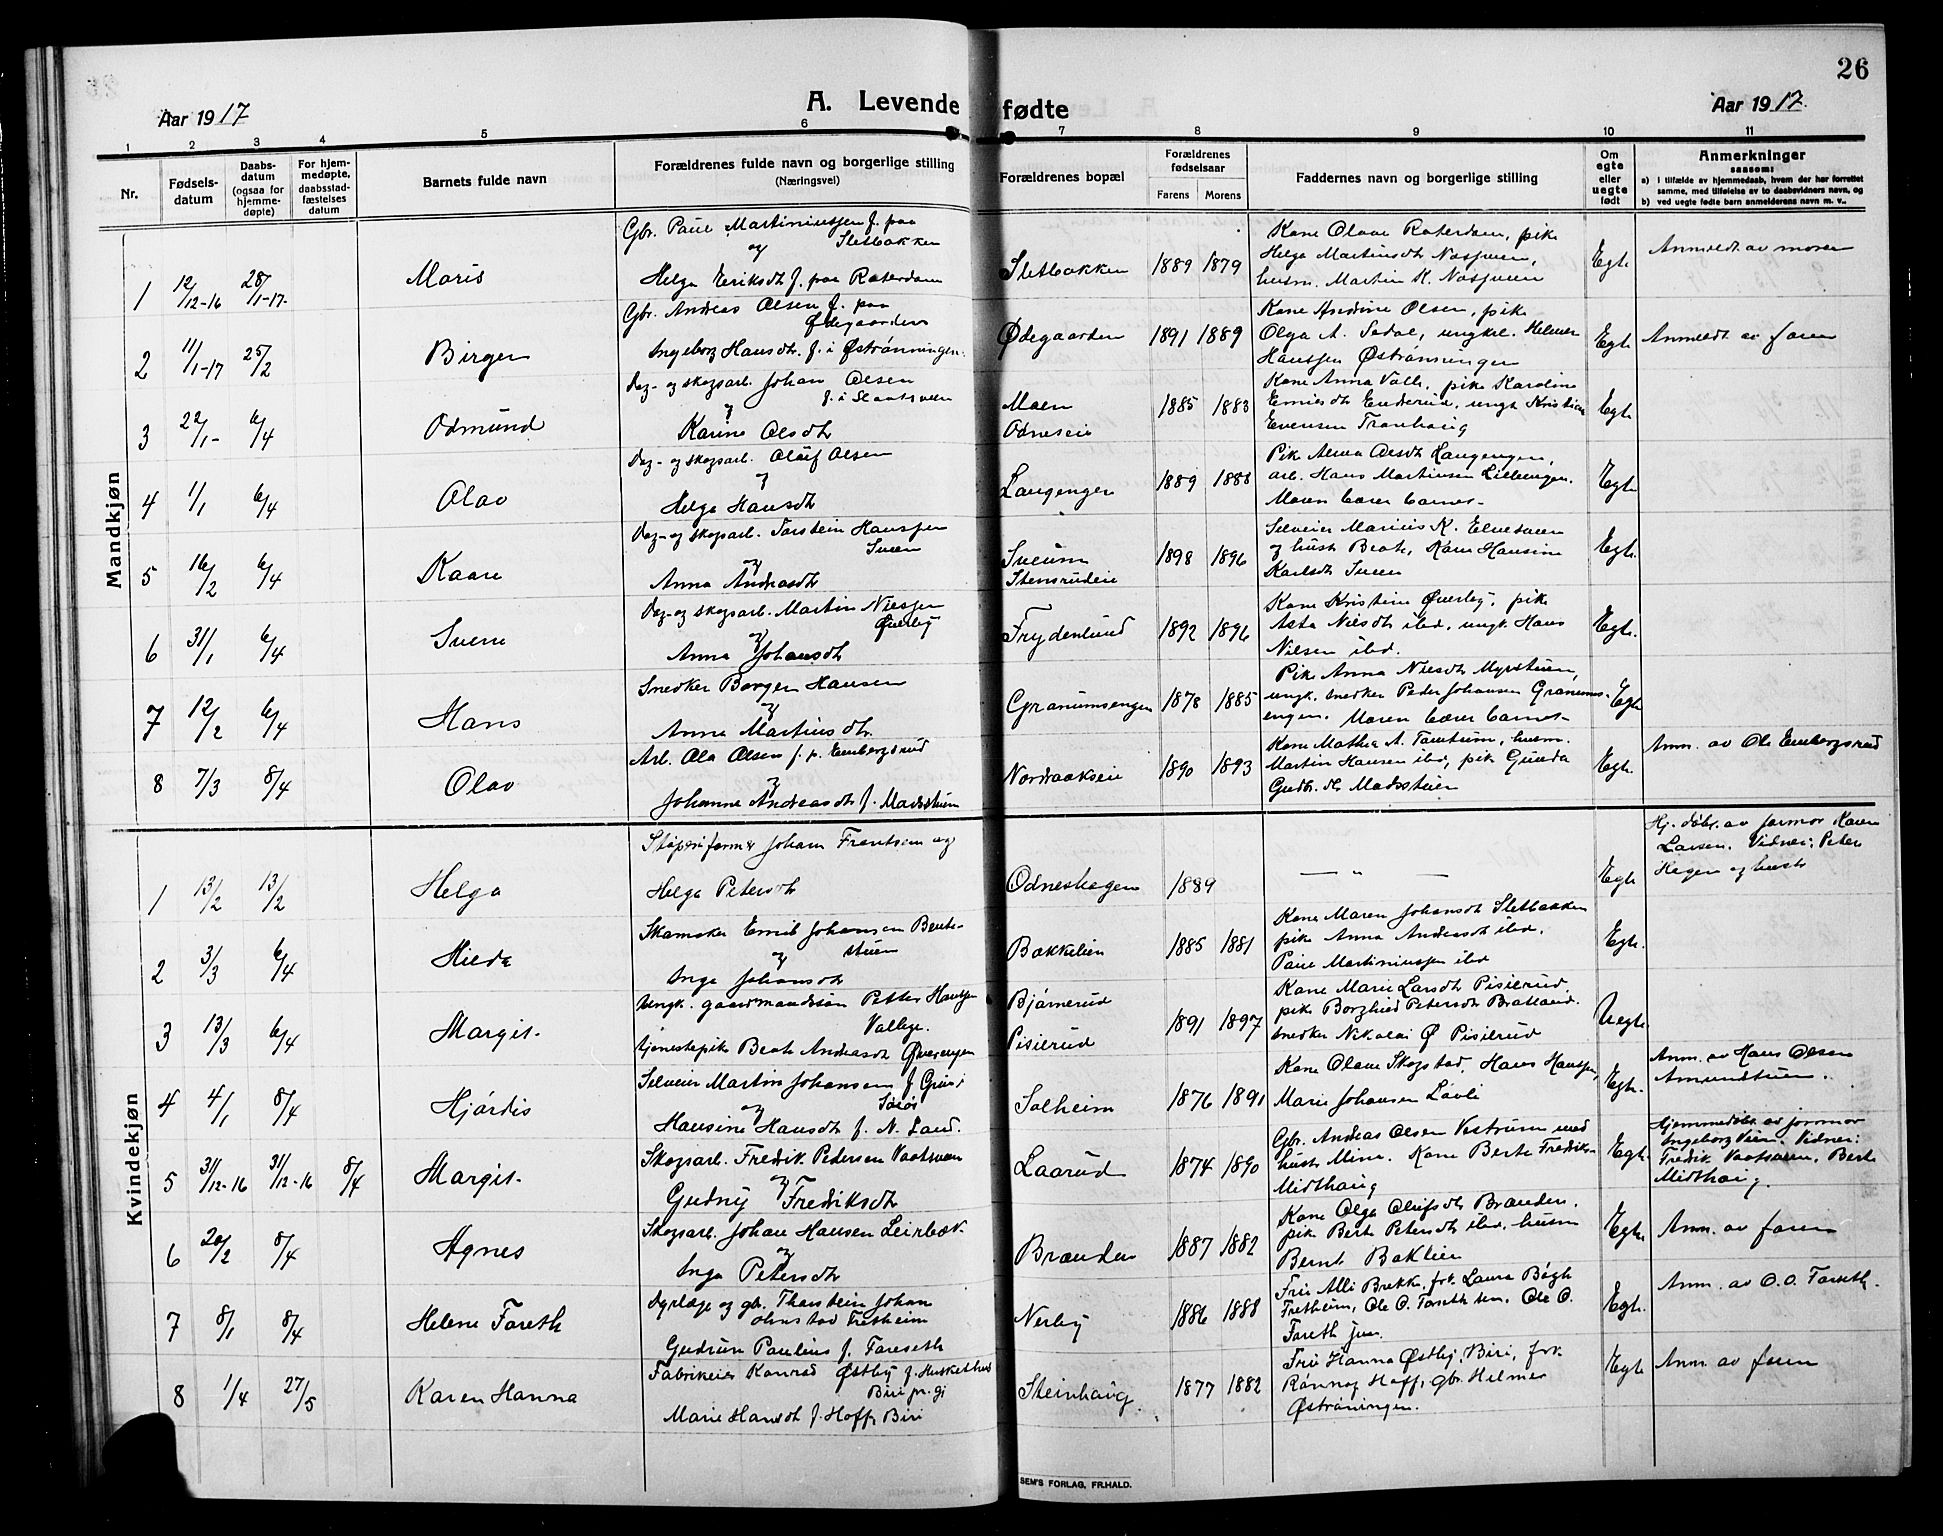 26
Aar 1917
A. Levende fødte
Aar 1917.
1 2 3 4 5 6 7 8 9 10 11
Nr.
Fødsels-
datum
Daabs-
datum
(ogsaa for
hjemme-
døpte)
For hjem-
medøpte,
daabsstad-
fæstelses
datum
Barnets fulde navn
Forældrenes fulde navn og borgerlige stilling
(Næringsvei)
Forældrenes bopæl
Forældrenes
fødselsaar
Farens Morens
Faddernes navn og borgerlige stilling
Om
egte
eller
uegte
født
Anmerkninger
saasom:
a) i tilfælde av hjemmedaab, hvem der har forrettet
samme, med tilføielse av to daabsvidners navn, og
b) ved uegte fødte barn anmelderens navn m. v..
Mandkjøn
Gbr. Paul Martiniussen f. paa
og Sletbakken
1 12/12-16 28/1-17. Maris Helga Eriksdt f. paa Roterdam Sletbakken 1889 1879
Kone Olava Roterdam, pike
Helga Martinsdt Nosgveen,
husm. Martin H. Nosgveen
Egte Anmeldt av moren
Gbr. Andreas Olsen f. paa
Ødegaarden
2 11/1-17 25/2 Birger Ingeborg Hansdt. f. i Østrønningen. Ødegaarden 1891 1889
Kone Andrine Olsen, pike
Olga A. Sodal, ungkl. Helmer
Hanssen Østrønningen
Egte Anmeldt av faren
Dag- og skogsarb. Johan Olsen
f. i Slaatsveen
3 22/1- 6/4 Odmund Karine Olsdt Moen
Odneseie 1885 1883
Kone Anna Volla, pike Karoline
Enderud, ungk Kristian
Evensen Tronhaug
Egte
Dag- og skogsarb. Oluf Olsen
og
4 1/1 6/4 Olav Helga Hansdt Langengen 1889 1888
Pike Alma Olsdt Langengen,
arb. Hans Martinsen Lillengen.
Moren bærer barnet-
Egte
Dag- og skogsarb. Torstein Hanssen
Sveen
og
5 16/2 6/4 Kaare Anna Andreasdt Sveum
Stensrudeie 1898 1896
Selveier Marius K. Elvesveen
og hust Beate, Kone Hansine
Karlsdt Sveen
Egte.
Dag- og skogsarb. Martin Nilssen
Øverby
og
6 31/1 6/4 Sverre Anna Johansdt Frydenlund 1892 1896
Kone Kristine Øverby, pike
Asta Nilsdt ibd, ungk. Hans
Nilsen ibd.
Egte.
Snedker Borger Hansen
og
7 12/2 6/4 Hans Anna Martinsdt. Granumsengen 1878 1885
Pike Anna Nilsdt Myrstuen,
ungk. snedker Peder Johansen Granums-
engen. Moren bærer barnet-
Egte
Arb. Ola Olsen f. p. Embergsrud
og
8 7/3 8/4 Olav Johanne Andreasdt f. Madsstuen Nordaakseie 1890 1893
Kone Mathea A. Tomtum, husm.
Martin Hansen ibd, pike Gunda
Gudbr. dt Madsstuen
Egte. Anm. av Ole Embergsrud
Kvindekjøn
Støperiform Johan Frantsen og
1 13/2 13/2 Helga Helga Petersdt Odneshagen 1889
— „ —
Egte
Hj. døbt. av farmor Karen
Larsen. Vidner: Peter
Hagen og hust
Skomaker Emil Johansen Bente-
stuen
og
2 3/3 6/4 Hilda Inga Johansdt Bakkelien 1885 1881
Kone Maren Johansdt Sletbakken
pike Anna Andreasdt ibd.
Paul Martiniussen ibd
Egte.
Ungk. gaardmandssøn Petter Hanssen
Vollige.
3 13/3 6/4 Margit. tjenestepike Beate Andreasdt Øverengen
Bjørnerud
Pisilrud 1891 1897
Kone Marie Larsdt Pisilrud,
pike Borghild Petersdt Bratland.
snedker Nikolai Ø Pisilrud
Uegte.
Selveier Martin Johansen f Grini
Søroi
og
4 4/1 8/4 Hjørdis Hansine Hansdt f. N. Land. Solheim 1876 1891
Kone Olava Skogstad, Hans Hanssen,
Marie Johansen Løvli
Egte.
Anm. av Hans Olsen
Amundstuen.
Skogsarb. Fredrik Pedersen Vaatsveen
og
5 31/12-16 31/12-16 8/4 Margit. Gudny Fredriksdt Laarud 1874 1890
Gbr. Andreas Olsen Vestrum med
hust Mina. Kone Berte Fredriks-
Midthaug
Egte
Hjemmedøbt av jormor
Ingeborg Vien. Vidner:
Fredik Vaatsveen, Berte
Midthaug.
Skogsarb. Johan Hansen Leirbæk.
og
6 20/2 8/4 Agnes Inga Petersdt Brænden 1887 1882
Kone Olga Olufsdt Brænden.
pike Berte Petersdt ibd, husm
Bernt Baklien
Egte Anm. av faren
Dyrlæge og gbr. Thorstein Johan
Ohnstad Fretheim
7 8/1 8/4 Helene Fareth Gudrun Pauline f. Fareseth Nerby 1886 1888
Fru Alli Brekke, frk. Laura Bøgh
Fretheim, Ole O. Fareth sen, Ole O.
Fareth jun.
Egte. Anm. av O. O. Fareth.
Fabrikeier Konrad Østby f. Huskelhus
Biri pr. gj
8 1/4 27/5 Karen Hanna Marie Hansdt f. Hoff, Biri Steinhaug. 1877 1882
Fru Hanna Østby, Biri, frk.
Rønnog Hoff, gbr Hilmer
Østrøningen.
Egte Anm. av faren
SEM'S FORLAG, FR.HALD.